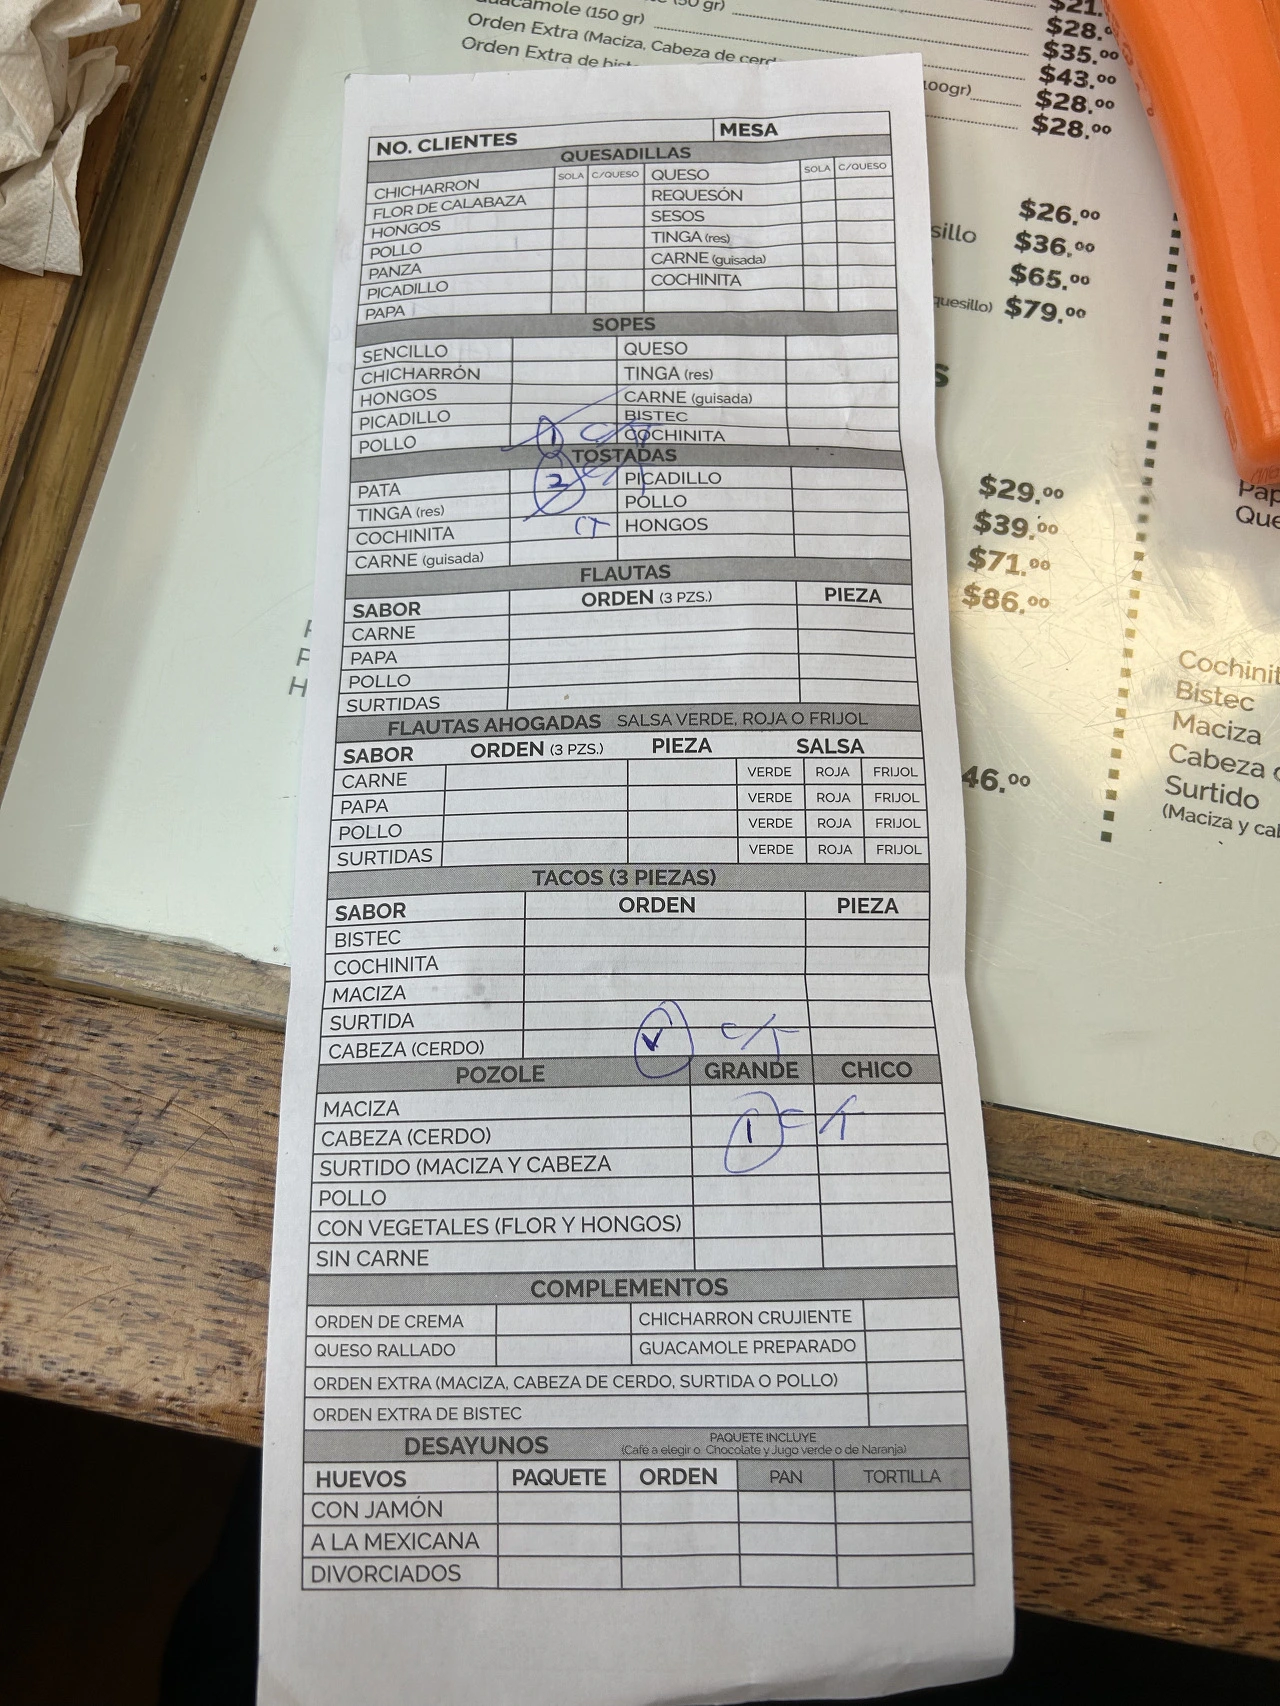 (150 gr)
Orden Extra (Maciza, Cabeza de cerd
Orden Extra de
$21.
$28.
$35.00
$43.00
100gr) $28.00
$28.00
NO. CLIENTES MESA
QUESADILLAS
SOLA C/QUESO SOLA C/QUESO
CHICHARRON QUESO
FLOR DE CALABAZA REQUESÓN
HONGOS SESOS
POLLO TINGA (res)
PANZA CARNE (guisada)
PICADILLO COCHINITA
PAPA
SOPES
SENCILLO QUESO
CHICHARRÓN TINGA (res)
HONGOS CARNE (guisada)
PICADILLO BISTEC
POLLO 1 C/T COCHINITA
TOSTADAS
PATA 2 C/T PICADILLO
TINGA (res) POLLO
COCHINITA CT HONGOS
CARNE (guisada)
FLAUTAS
SABOR ORDEN (3 PZS.) PIEZA
CARNE
PAPA
POLLO
SURTIDAS
FLAUTAS AHOGADAS SALSA VERDE, ROJA O FRIJOL
SABOR ORDEN (3 PZS.) PIEZA SALSA
CARNE VERDE ROJA FRIJOL
PAPA VERDE ROJA FRIJOL
POLLO VERDE ROJA FRIJOL
SURTIDAS VERDE ROJA FRIJOL
TACOS (3 PIEZAS)
SABOR ORDEN PIEZA
BISTEC
COCHINITA
MACIZA
SURTIDA
CABEZA (CERDO) C/T
POZOLE GRANDE CHICO
MACIZA
CABEZA (CERDO) 1 C/T
SURTIDO (MACIZA Y CABEZA
POLLO
CON VEGETALES (FLOR Y HONGOS)
SIN CARNE
COMPLEMENTOS
ORDEN DE CREMA CHICHARRON CRUJIENTE
QUESO RALLADO GUACAMOLE PREPARADO
ORDEN EXTRA (MACIZA, CABEZA DE CERDO, SURTIDA O POLLO)
ORDEN EXTRA DE BISTEC
DESAYUNOS PAQUETE INCLUYE
(Café a elegir o Chocolate y Jugo verde o de Naranja)
HUEVOS PAQUETE ORDEN PAN TORTILLA
CON JAMÓN
A LA MEXICANA
DIVORCIADOS
$26.00
sillo $36.00
$65.00
quesillo) $79.00
S
$29.00
$39.00
$71.00
$86.00
46.00
Pap
Que
Cochinit
Bistec
Maciza
Cabeza
Surtido
(Maciza y cab